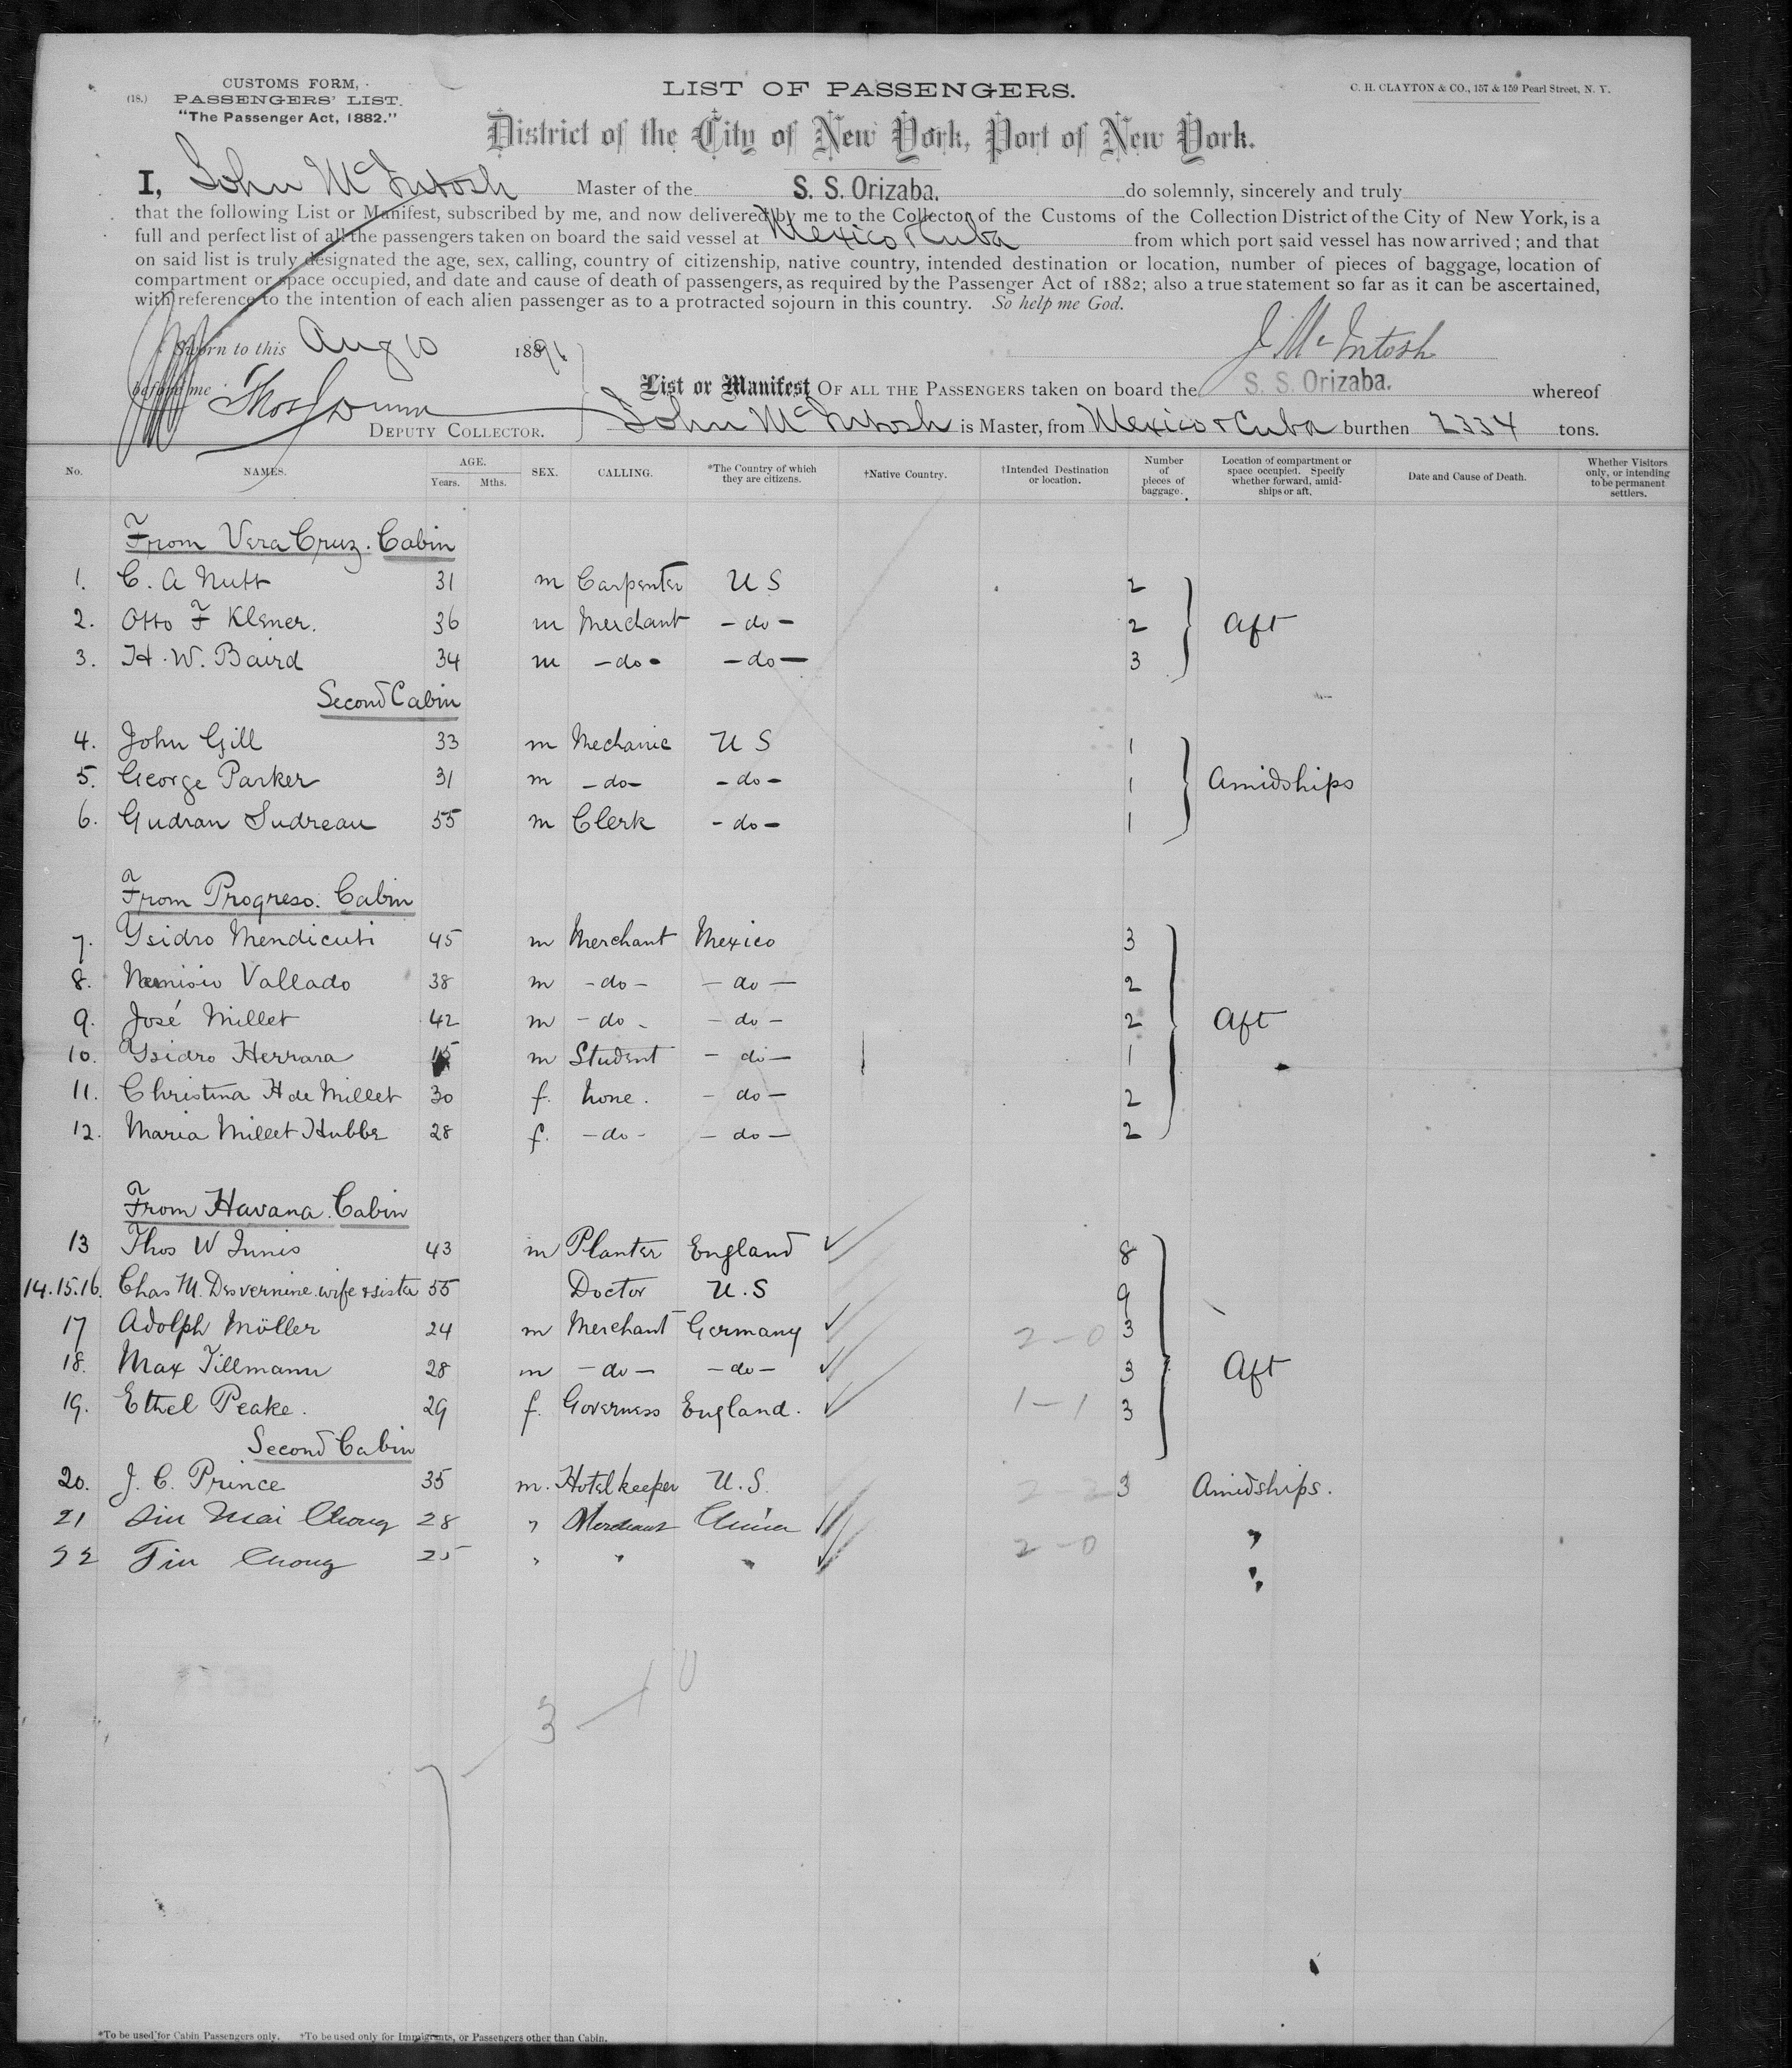 CUSTOMS FORM,
(18.) PASSENGERS' LIST.
"The Passenger Act, 1882."
LIST OF PASSENGERS.
C. H. CLAYTON & CO., 157 & 159 Pearl Street, N. Y.
District of the City of New York, Port of New York.
I, John McIntosh Master of the S. S. Orizaba. do solemnly, sincerely and truly
that the following List or Manifest, subscribed by me, and now delivered by me to the Collector of the Customs of the Collection District of the City of New York, is a
full and perfect list of all the passengers taken on board the said vessel at Mexico & Cuba from which port said vessel has now arrived; and that
on said list is truly designated the age, sex, calling, country of citizenship, native country, intended destination or location, number of pieces of baggage, location of
compartment or space occupied, and date and cause of death of passengers, as required by the Passenger Act of 1882; also a true statement so far as it can be ascertained,
with reference to the intention of each alien passenger as to a protracted sojourn in this country. So help me God.
Sworn to this Aug 10 1896
J McIntosh
before me Thos Dunn
DEPUTY COLLECTOR.
List or Manifest OF ALL THE PASSENGERS taken on board the S. S. Orizaba. whereof
John McIntosh is Master, from Mexico & Cuba burthen 2334 tons.
No. NAMES. AGE. Years. Mths. SEX. CALLING. *The Country of which they are citizens. †Native Country. †Intended Destination or location. Number of pieces of baggage. Location of compartment or space occupied. Specify whether forward, amidships or aft. Date and Cause of Death. Whether Visitors only, or intending to be permanent settlers.
From Vera Cruz. Cabin
1. C. A Nutt 31 m Carpenter U S 2
2. Otto F Klener. 36 m Merchant -do- 2 Aft
3. H. W. Baird 34 m -do- -do- 3
Second Cabin
4. John Gill 33 m Mechanic U S 1
5. George Parker 31 m -do- -do- 1 Amidships
6. Gudran Sudreau 55 m Clerk -do- 1
From Progreso. Cabin
7. Ysidro Mendicuti 45 m Merchant Mexico 3
8. Vallado 38 m -do- -do- 2
9. José Millet 42 m -do- -do- 2 Aft
10. Ysidro Herrara 15 m Student -do- 1
11. Christina H de Millet 30 f. None. -do- 2
12. Maria Millet Hubbe 28 f. -do- -do- 2
From Havana. Cabin
13 Thos W Innis 43 m Planter England 8
14.15.16. Chas M. Desvernine wife & sister 55 Doctor U.S 9
17 Adolph Möller 24 m Merchant Germany 2-0 3
18. Max Tillmann 28 m -do- -do- 3 Aft
19. Ethel Peake. 29 f. Governess England. 1-1 3
Second Cabin
20. J. C. Prince 35 m. Hotel keeper U.S. 3 Amidships.
21 Mai Chong 28 " Merchant China "
22 Chong 25 " " " 2-0 "
3-10
*To be used for Cabin Passengers only. †To be used only for Immigrants, or Passengers other than Cabin.